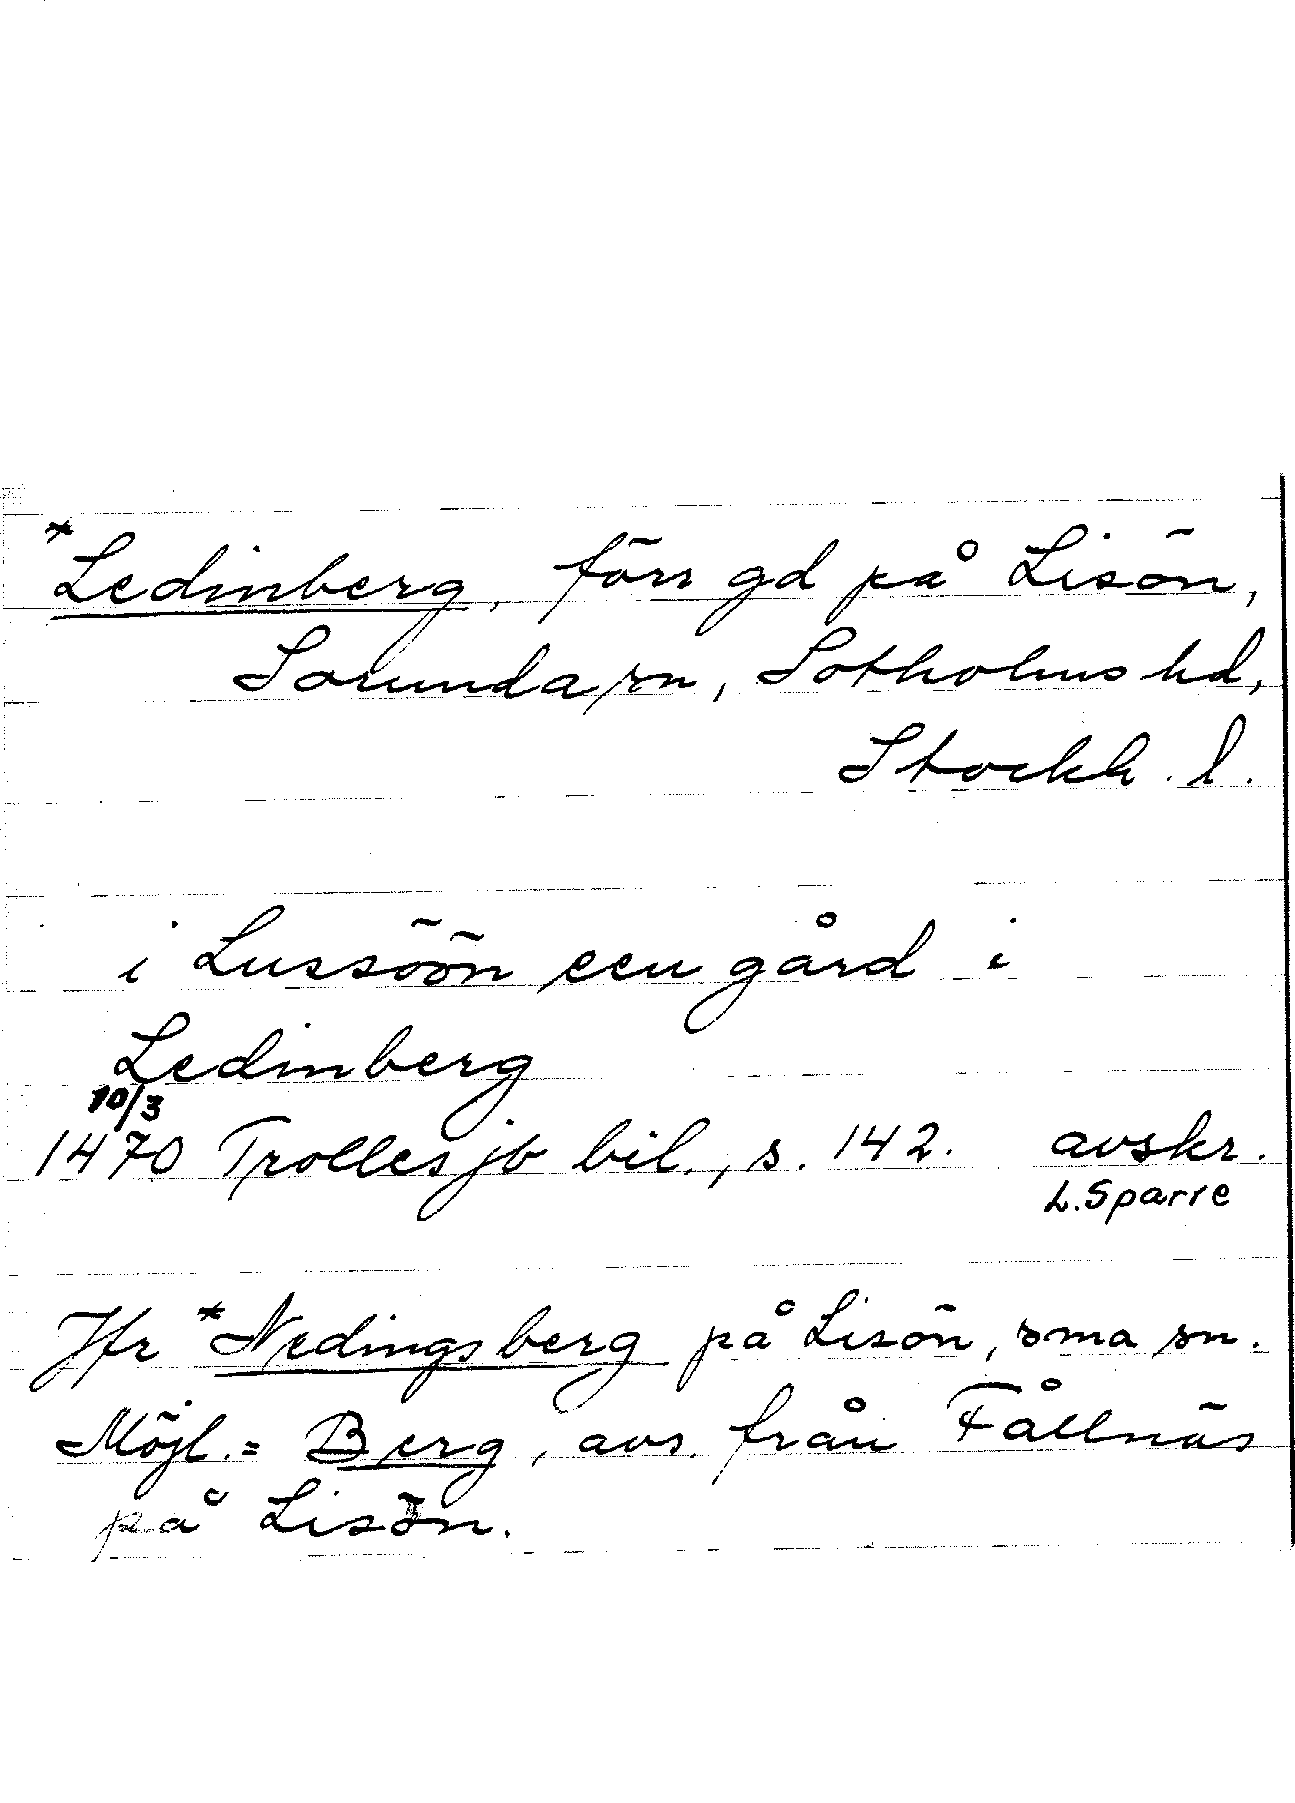 *Ledinberg, förr gd på Lisön,
Sorunda sn, Sotholms hd,
Stockh. l.
i Lussöön een gård i
Ledinberg
10/3
1470 Trolles jb bil., s. 142. avskr.
L. Sparre
Jfr *Nedingsberg på Lisön, sma sn.
Möjl. = Berg, avs. från Fållnäs
på Lisön.